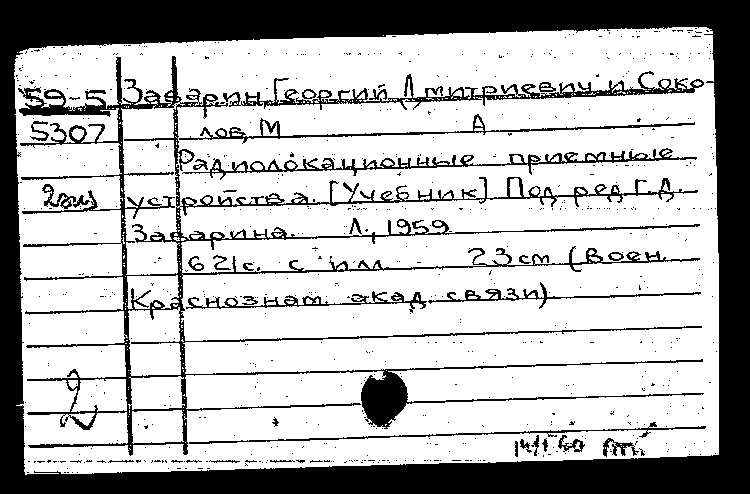 59-5 Заварин, Георгий Дмитриевич и Соко-
5307 лов, М А
Радиолокационные приемные
2 экз устройства. [Учебник] Под ред. Г.Д.
Заварина. Л., 1959
621с. с илл 23 см (Воен.
Краснознам. акад. связи)
2
14/I 60